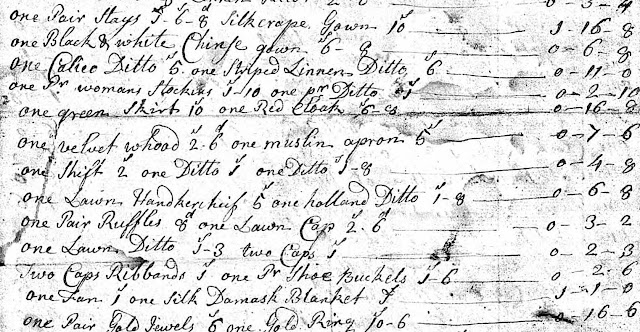 0-3-4
one Pair Stays 1-6-8 Silkcrape Gown 10 1-16-8
one Black & white Chinse gown 6-8 0-6-8
one Calico Ditto 5 one Striped Linnen Ditto 6 0-11-0
one Pr womans Stockins 1-10 one pr Ditto 1 0-2-10
one green Skirt 10 one Red Cloak 6-8 0-16-8
one velvet whood 2-6 one muslin apron 5 0-7-6
one Shift 2 one Ditto 1 one Ditto 1-8 0-4-8
one Lawn Handkercheif 5 one holland Ditto 1-8 0-6-8
one Pair Ruffles 8 one Lawn Cap 2-6 0-3-2
one Lawn Ditto 1-3 two Caps 1 0-2-3
Two Caps Ribbands 1 one Pr Shoe Buckels 1-6 0-2-6
one Fan 1 one Silk Damask Blanket 1-1-0
one Pair Gold Jewels 6 one Gold Ring 10-6 0-16-6